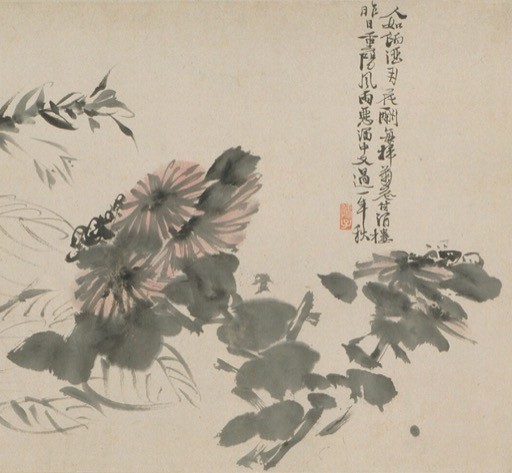 人如餉酒用花酬每掃菊花付酒樓
昨日重陽風雨惡酒中又過一年秋